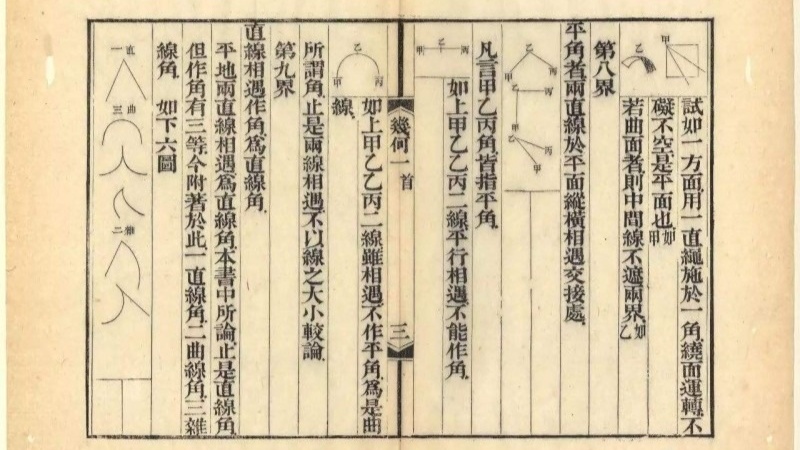 試如一方面.用一直繩施於一角.繞面運轉.不
礙不空.是平面也.如甲
若曲面者.則中間線不遮兩界.如乙
甲
乙
第八界
平角者.兩直線於平面縱橫相遇交接處.
乙
丙
甲
乙
丙
甲
甲
乙
丙
凡言甲乙丙角.皆指平角.
丙
乙
甲
如上甲乙乙丙二線.平行相遇.不能作角.
幾何一 首
三
乙
丙
甲
如上甲乙乙丙二線.雖相遇.不作平角.為是曲
線.
所謂角.止是兩線相遇.不以線之大小較論.
第九界
直線相遇作角.為直線角.
平地兩直線相遇.為直線角.本書中所論.止是直線角.
但作角有三等.今附著於此.一直線角.二曲線角.三雜
線角. 如下六圖
直 一
曲 三
雜 二